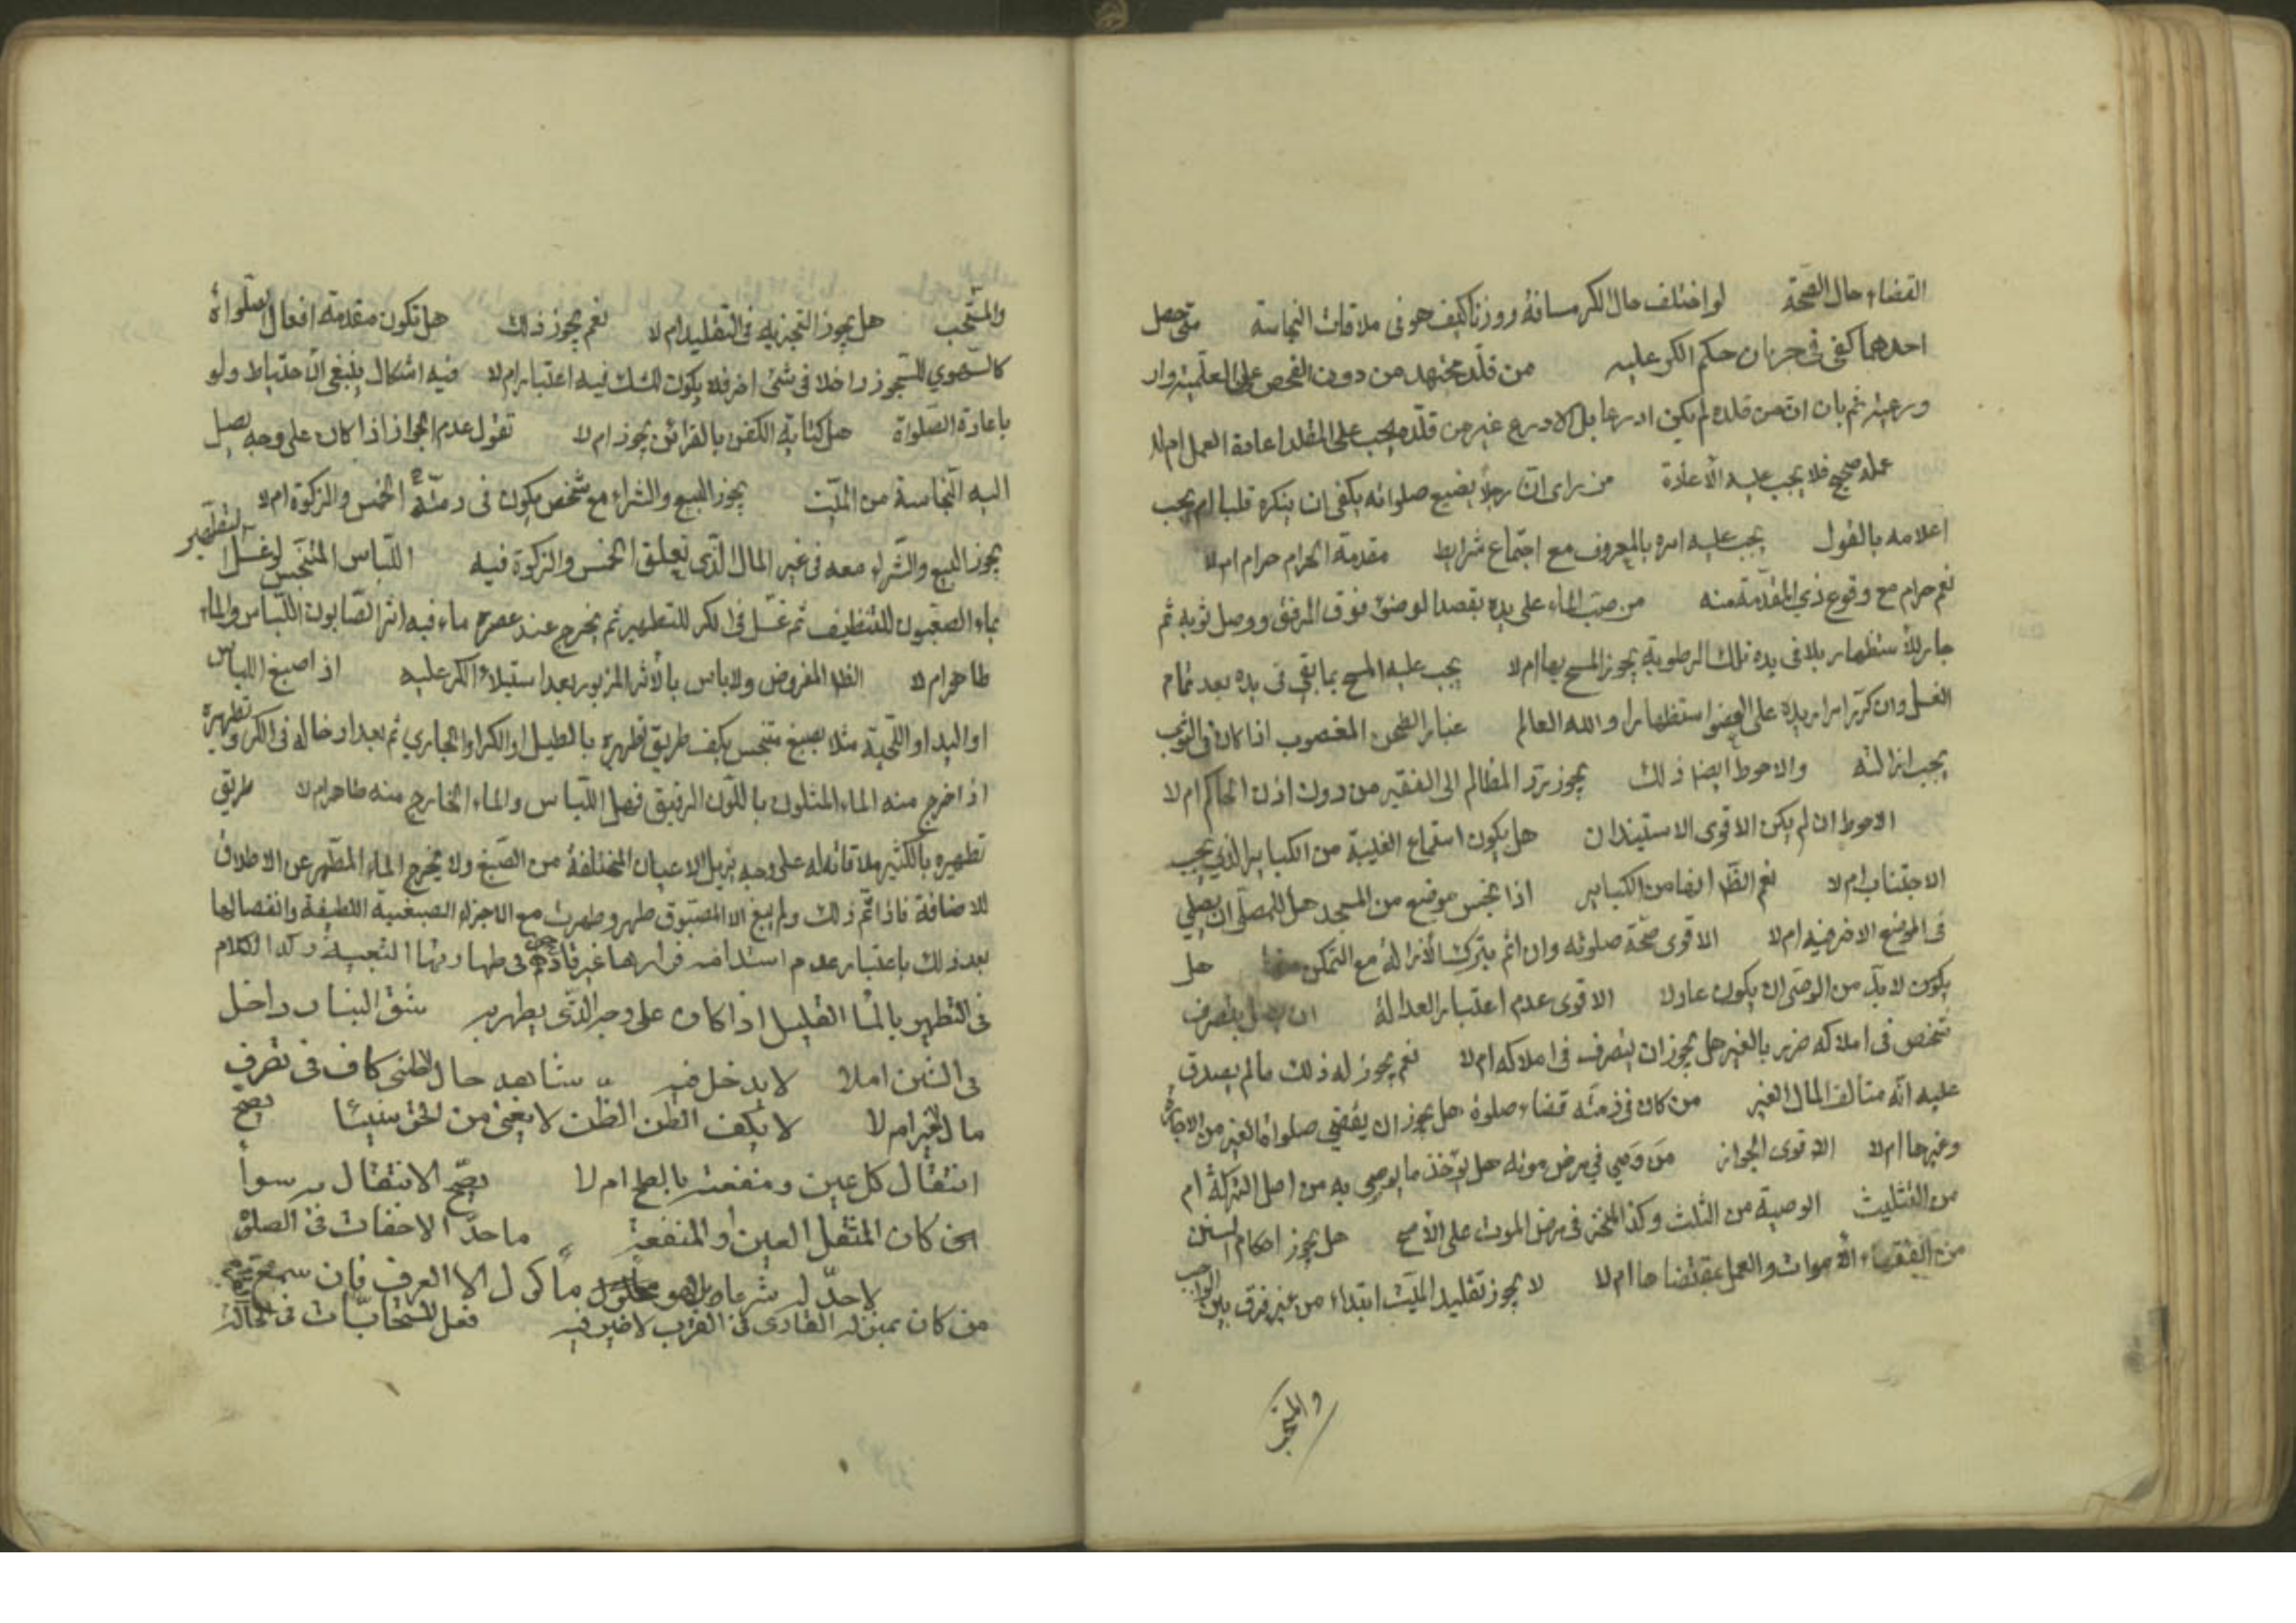 القضاء حال الصحة لو اختلف حال الكر مسافة ووزنا كيف هو فى ملاقات النجاسة متى حصل
احدهما كفى فى جريان حكم الكر عليه من قلّد مجتهد من دون الفحص على اعلميته واو
ورعيته ثم بان ان من قلده لم يكن اورعا بل الاورع غير من قلّده يجب على المقلد اعادة العمل ام لا
عمله صحيح فلا يجب عليه الأعادة من راى انّ رجلاً يضيع صلواته يكفى ان ينكره قلبا ام يجب
اعلامه بالقول يجب عليه امره بالمعروف مع اجتماع شرايط مقدمة الحرام حرام ام لا
نعم حرام مع وقوع ذي المقدّمة منه من صبّ الماء على يده بقصد الوضوء فوق المرفق ووصل ثوبه ثم
جاء للأستظهار بلا فى يده تلك الرطوبة يجوز المسح بها ام لا يجب عليه المسح بما بقي فى يده بعد تمام
الغسل وان كرّر امرار يده على العضو استظهارا والله العالم غبار الطحن المغصوب اذا كان فى الثوب
يجب ازالته والاحوط ايضا ذلك يجوز ردّ المظالم الى الفقير من دون اذن الحاكم ام لا
الاحوط ان لم يكن الاقوى الاستيذان هل يكون استماع الغيبة من الكباير الذي يجب
الاجتناب ام لا نعم الظّ انها من الكباير اذا نجس موضع من المسجد هل للمصلّى ان يصلي
فى الموضع الاخر فيه ام لا الاقوى صحّة صلوته وان اثم بترك الأزالة مع التمكن هل
يكون لا بدّ من الوصّى ان يكون عادلا الاقوى عدم اعتبار العدالة ان بتصرف
شخص فى املاكه ضرر بالغير هل يجوز ان يتصرف فى املاكه ام لا نعم يجوز له ذلك مالم يصدق
عليه انّه متالف المال الغير من كان فى ذمته قضاء صلوة هل يجوز ان يقضي صلوات الغير من الاجارة
وغيرها ام لا الاقوى الجواز من وصي في مرض موته هل يؤخذ ما يوصى به من اصل التركة ام
من التثليث الوصية من الثلث وكذا المنجّز فى مرض الموت على الأصح هل يجوز احكام السنن
من الفقهاء الأموات والعمل بمقتضاها ام لا لا يجوز تقليد الميّت ابتداء من غير فرق بين الواجب
والمستحب
والمستّحب هل يجوز التجزيه فى التقليد ام لا نعم يجوز ذلك هل تكون مقدمة افعال الصلواة
كالتهوي للسّجود داخلا فى شئ اخر فلا يكون للشك فيه اعتبار ام لا فيه اشكال ينبغى الاحتياط ولو
باعادة الصّلواة هل كتابة الكفن بالقرائن يجوز ام لا نقول عدم الجواز اذا كان على وجه يصل
اليه النّجاسة من الميّت يجوز البيع والشراء مع شخص يكون فى ذمّته الخمس والزكوة ام لا
يجوز البيع والشراء معه فى غير المال الّذى تعلق الخمس والزكوة فيه اللّباس المتنجس لو غسل
للتطهير
بماء الصعبون للتنظيف ثم غسّل فى الكر للتطهير ثم يخرج عند عصره ماء فيه اثر الصّابون اللّباس والماء
طاهر ام لا الظاهر المفروض ولا باس بالأثر المزبور بعد استيلاء الكر عليه اذا صبغ اللباس
او اليد او اللّحية مثلا بصبغ متنجس بكيف طريق تطهيره بالقليل او الكر او الجاري ثم بعد ادخاله فى الكر وتطهيره
اذا خرج منه الماء المتلون باللّون الرقيق فهل اللّباس والماء الخارج منه طاهر ام لا طريق
تطهيره بالكثير ملاقاته له على وجه يزيل الاعيان المختلفة من الصّبغ ولا يخرج الماء المطّهر عن الاطلاق
للاضافة فاذا تمّ ذلك ولم يبق الا المصبوق طهر وطهرت مع الاجزاء الصبغية اللطيفة وانفصالها
بعد ذلك باعتبار عدم استدامة قرارها غير قادح فى طهارتها التبعية وكذا الكلام
فى التطهير بالماء القليل اذا كان على وجه الّذى يطهر به شق البنان داخل
فى الثمن ام لا لا يدخل فيه شاهد حال ظنى كاف فى تصرف
مال الغير ام لا لا يكف الظن الظن لا يغنى من الحق شيئا يصح
انتقال كل عين ومنفعته بالصلح ام لا يصّح الانتقال به سوأ
كان المنتقل العين او المنفعة ما حدّ الاخفات فى الصلوة
لا حدّ له شرعا بل هو ماكول الا العرف فان سمع
من كان بمنزلة العادى فى القرب لا ضير فيه فعل المستحابّات فى الحالة